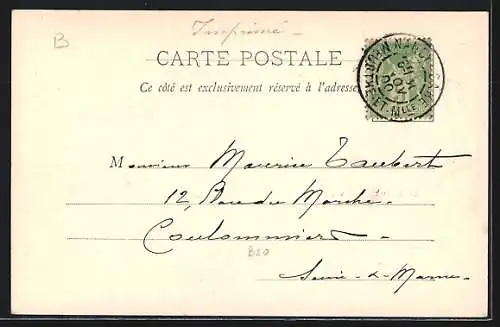 B
Imprimé
CARTE POSTALE
Ce côté est exclusivement réservé à l'adresse
NANCY
MEURTHE-ET-MLLE
Monsieur Maurice Taubert
12, Rue du Marché
Coulommiers
B20
Seine-&-Marne